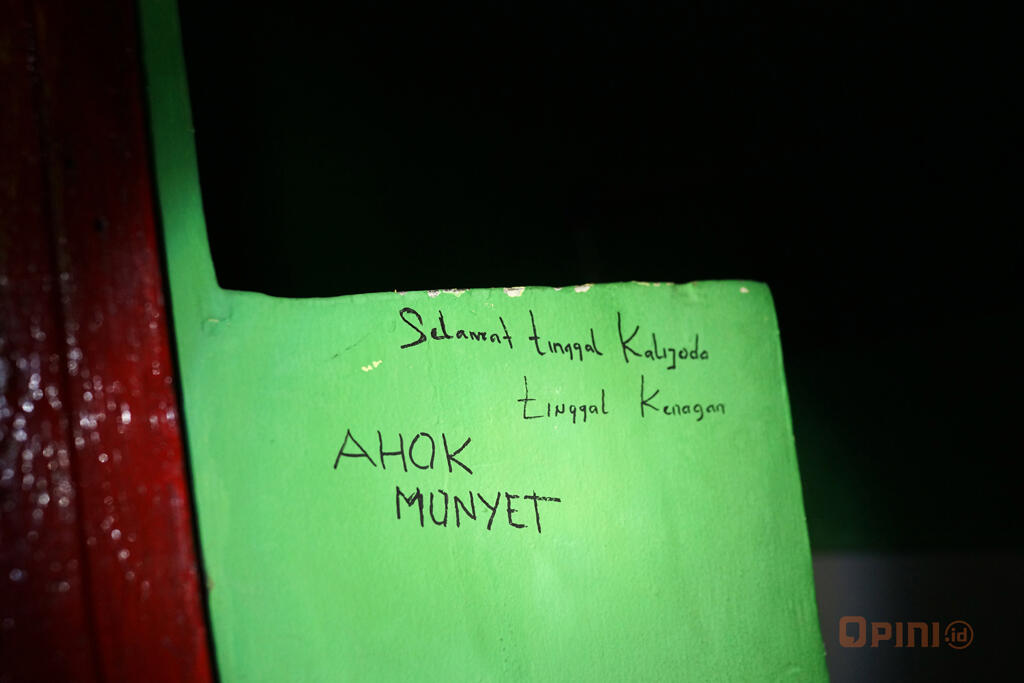 Selamat tinggal Kalijodo
tinggal Kenagan
AHOK
MUNYET
OPINI.id